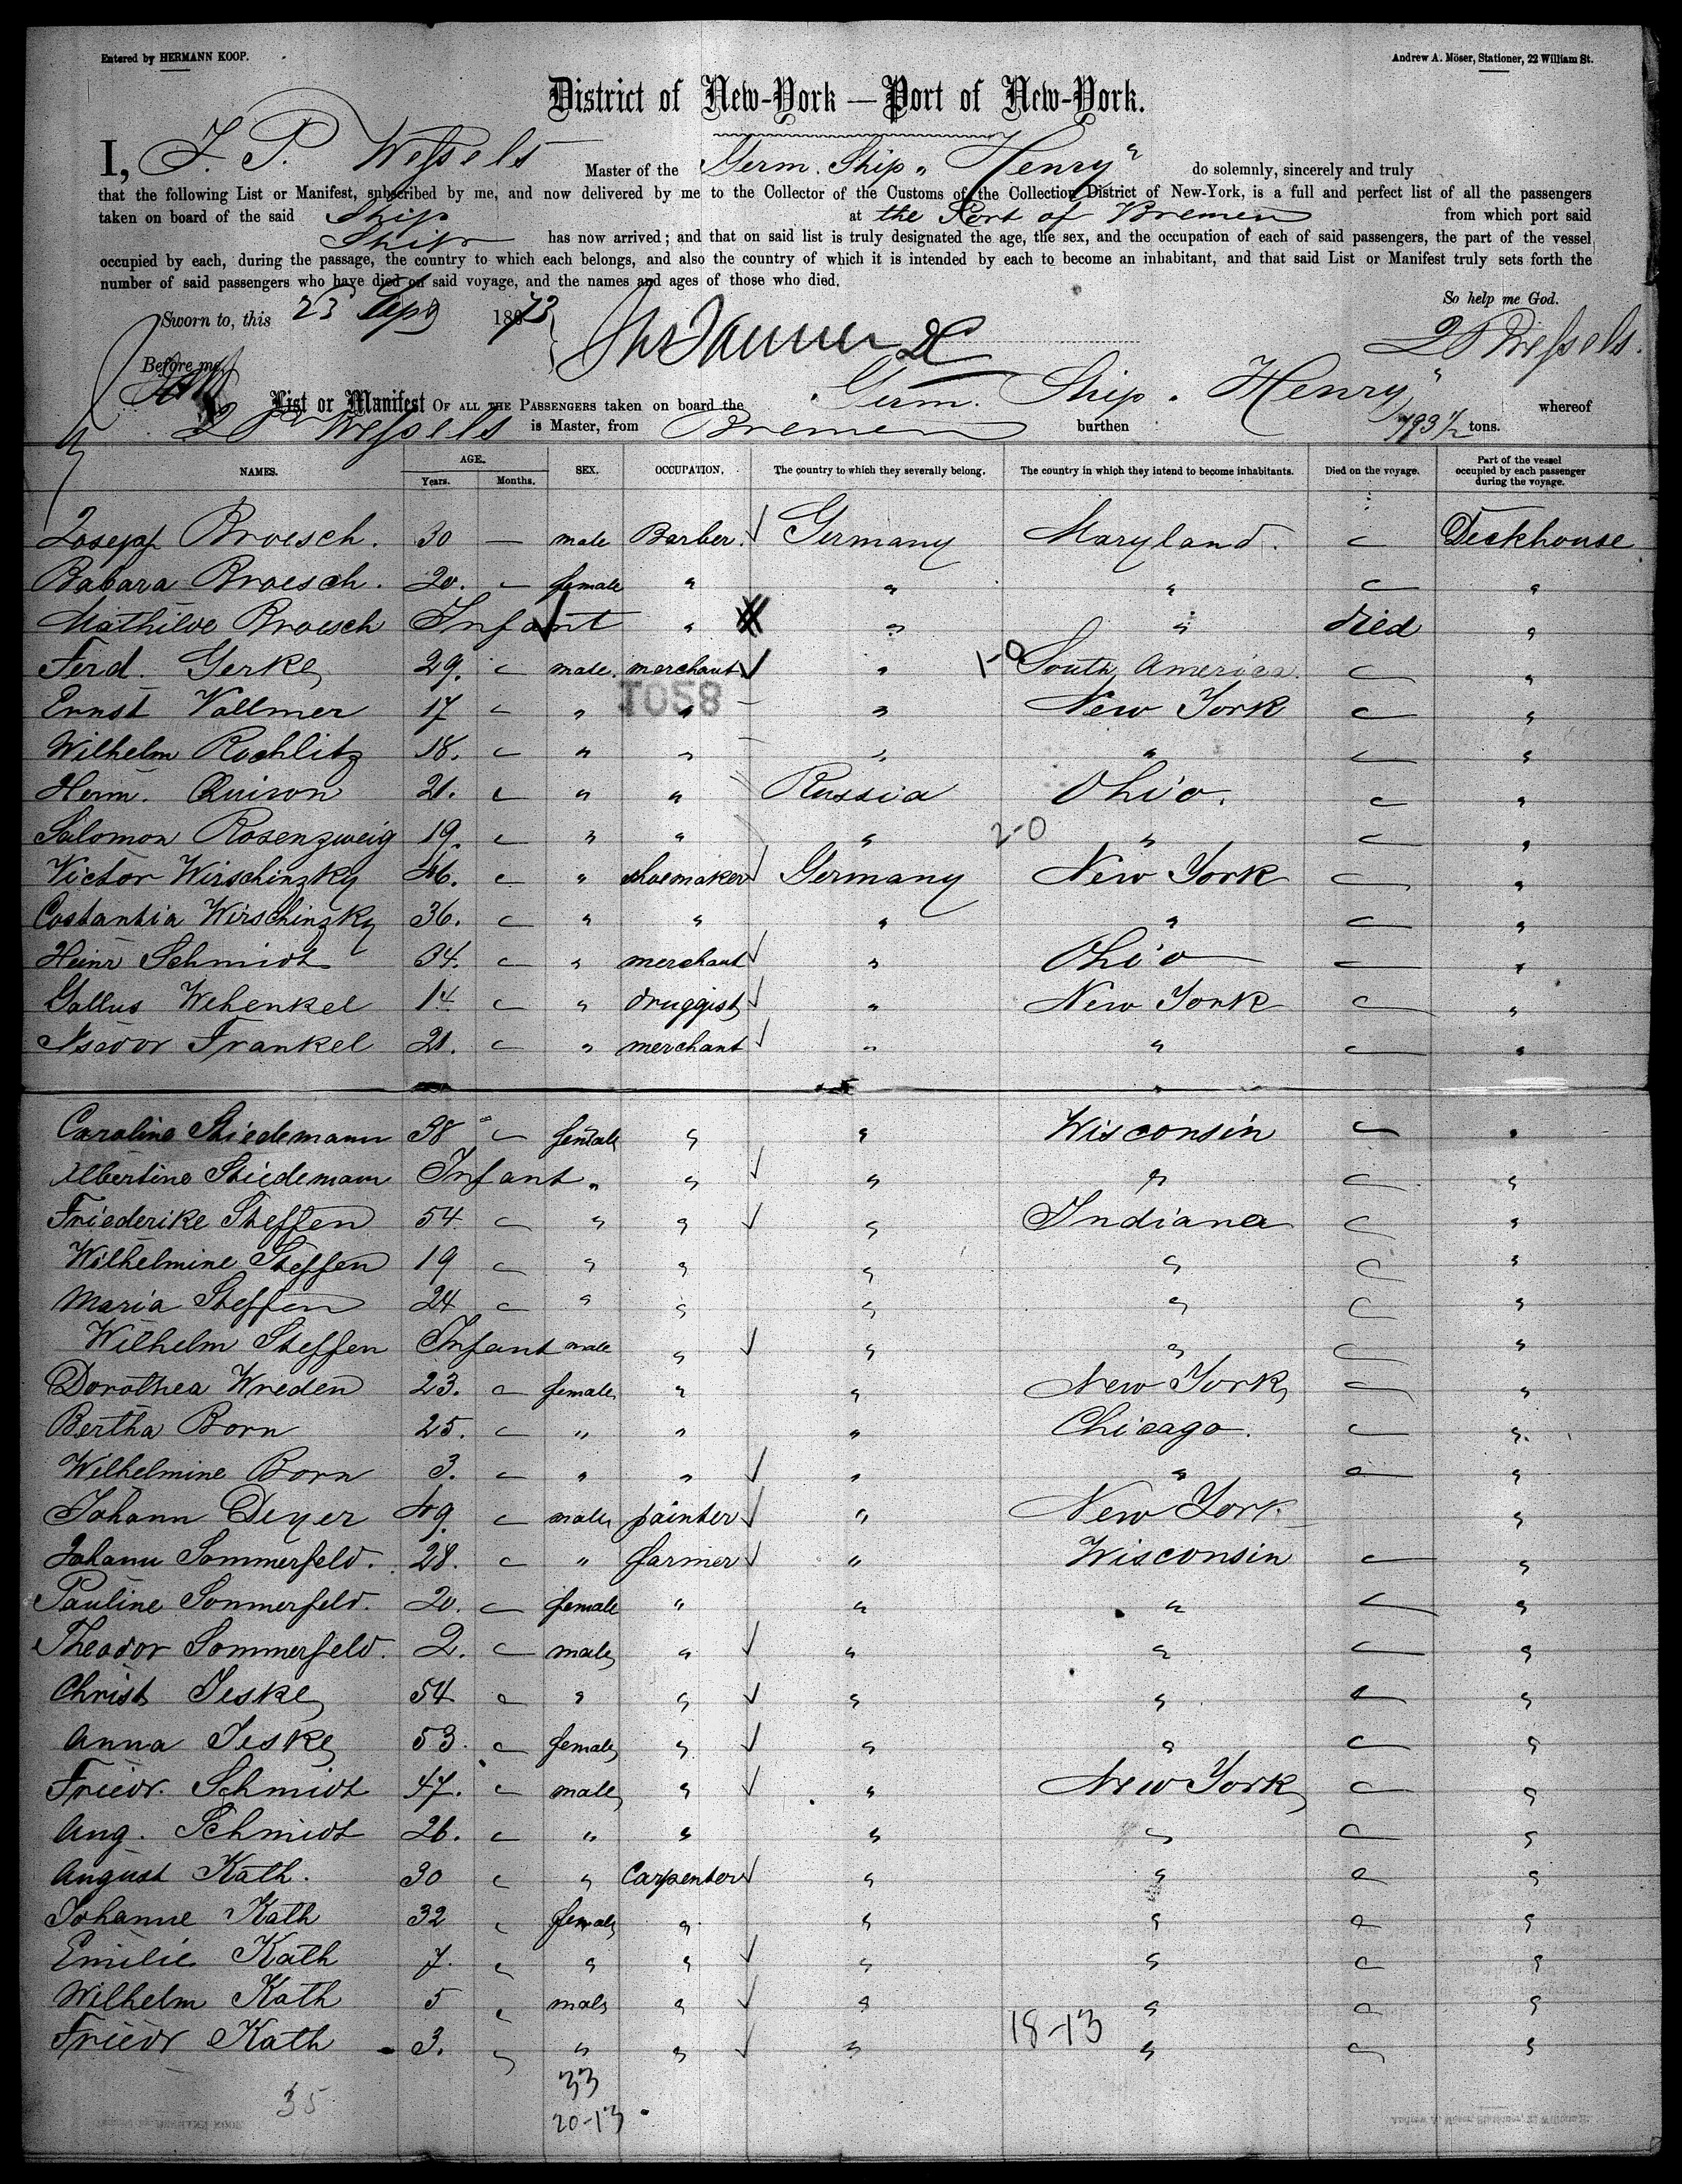 Entered by HERMANN KOOP.
Andrew A. Möser, Stationer, 22 William St.
District of New-York — Port of New-York.
I, J. P. Wessels Master of the Germ. Ship „ Henry" do solemnly, sincerely and truly
that the following List or Manifest, subscribed by me, and now delivered by me to the Collector of the Customs of the Collection District of New-York, is a full and perfect list of all the passengers
taken on board of the said Ship at the Port of Bremen from which port said
Ship has now arrived; and that on said list is truly designated the age, the sex, and the occupation of each of said passengers, the part of the vessel
occupied by each, during the passage, the country to which each belongs, and also the country of which it is intended by each to become an inhabitant, and that said List or Manifest truly sets forth the
number of said passengers who have died on said voyage, and the names and ages of those who died.
So help me God.
Sworn to, this 23 Sep 1873
J P Wessels.
Before me,
List or Manifest OF ALL THE PASSENGERS taken on board the Germ. Ship „ Henry" whereof
J P Wessels is Master, from Bremen burthen 793 1/2 tons.
NAMES. AGE. Years. Months. SEX. OCCUPATION. The country to which they severally belong. The country in which they intend to become inhabitants. Died on the voyage. Part of the vessel occupied by each passenger during the voyage.
Joseph Broesch. 30 — male Barber. Germany Maryland. — Deckhouse
Babara Broesch. 20. — female " " " — "
Mathilde Broesch Infant " " " died "
Ferd. Gerke 29. — male. merchant " 1-0 South America. — "
T058
Ernst Vollmer 17 — " " " New York — "
Wilhelm Rochlitz 18. — " " " " — "
Herm. Quiron 21. — " " Russia Ohio. — "
Salomon Rosenzweig 19. — " " " 2-0 " — "
Victor Wirschinzky 46. — " shoemaker Germany New York — "
Costantia Wirschinzky 36. — " " " " — "
Heinr Schmidt 34. — " merchant " Ohio — "
Gallus Wehenkel 14 — " druggist " New York — "
Isidor Frankel 21. — " merchant " " — "
Caroline Stiedemann 38 — female " " Wisconsin — "
Albertine Stiedemann Infant " " " " — "
Friederike Steffen 54 — " " " Indiana — "
Wilhelmine Steffen 19 — " " " " — "
Maria Steffen 24 — " " " " — "
Wilhelm Steffen Infant male " " " — "
Dorothea Wreden 23. — female " " New York — "
Bertha Born 25. — " " " Chicago. — "
Wilhelmine Born 3. — " " " " — "
Johann Deyer 49. — male painter " New York "
Johann Sommerfeld. 28. — " farmer " Wisconsin — "
Pauline Sommerfeld. 20. — female " " " — "
Theodor Sommerfeld. 2. — male " " " — "
Christ Jeske 54 — " " " " — "
Anna Jeske 53. — female " " " — "
Friedr. Schmidt 47. — male " " New York — "
Aug. Schmidt 26. — " " " " — "
August Kath. 30 — " Carpenter " " — "
Johanne Kath 32 — female " " " — "
Emilie Kath 7. — " " " " — "
Wilhelm Kath 5 — male " " " — "
Friedr Kath 3. — " " " 18-13 " — "
33
35
20-13